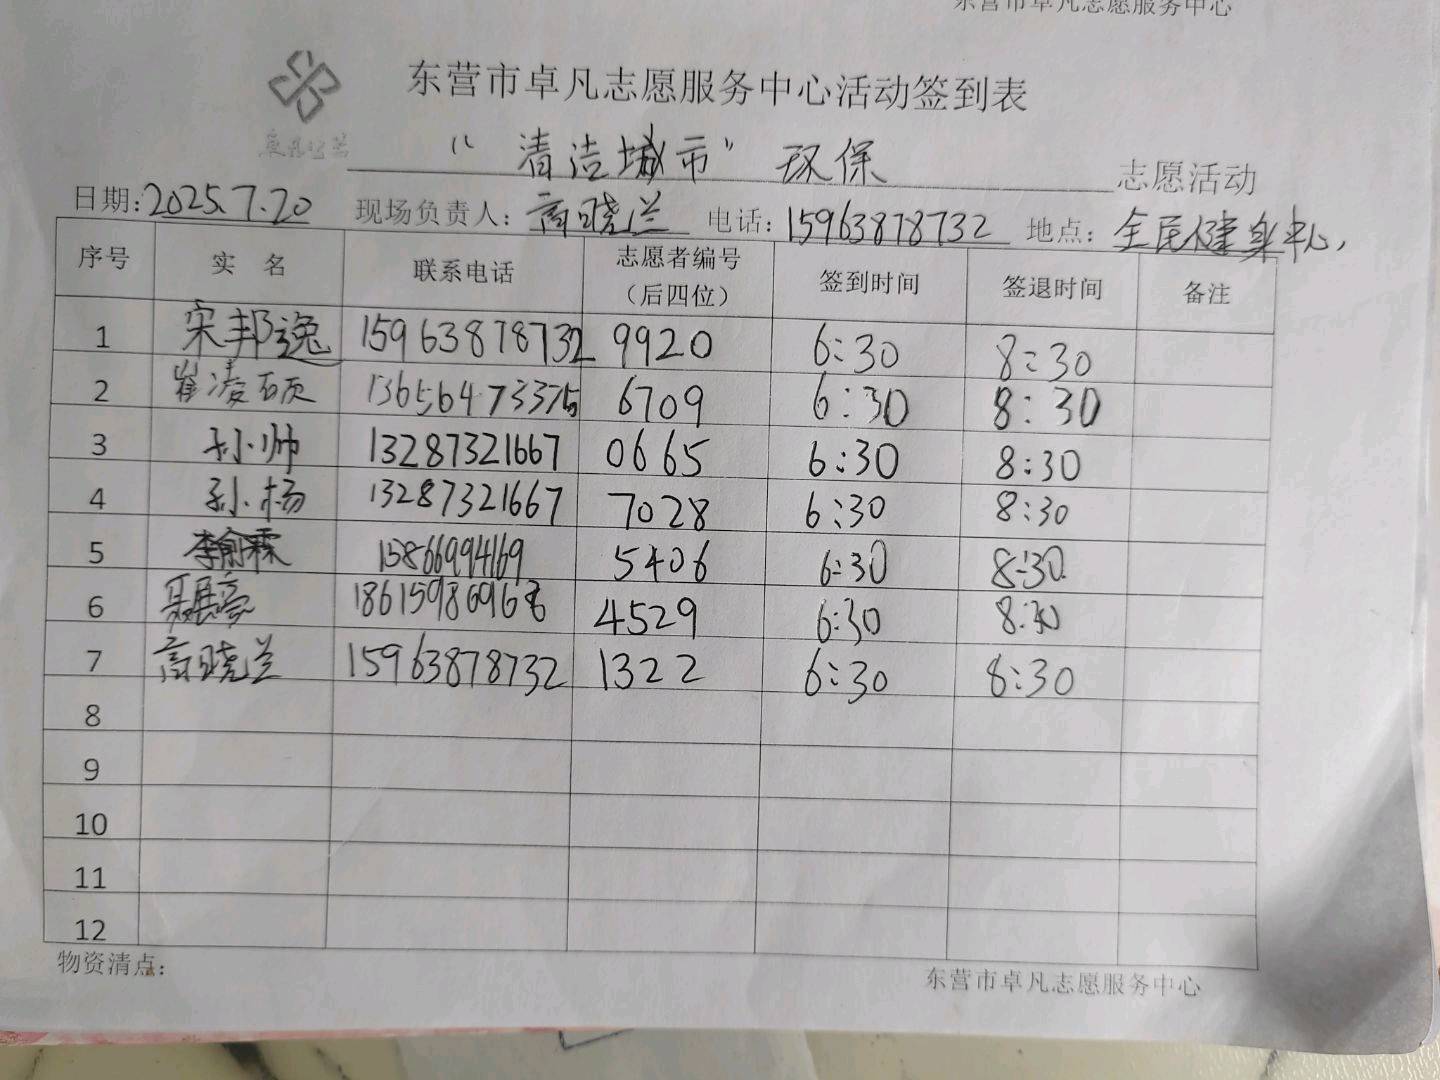 东营市卓凡志愿服务中心
东营市卓凡志愿服务中心活动签到表
卓凡公益
“清洁城市”环保 志愿活动
日期:2025.7.20 现场负责人:商晓兰 电话:15963878732 地点:全民健身中心,
序号 实 名 联系电话 志愿者编号（后四位） 签到时间 签退时间 备注
1 宋邦逸 15963878732 9920 6:30 8:30
2 崔凌硕 13656473375 6709 6:30 8:30
3 孙帅 13287321667 0665 6:30 8:30
4 孙杨 13287321667 7028 6:30 8:30
5 李俞霖 15866994169 5406 6:30 8:30
6 18615986968 4529 6:30 8:30
7 商晓兰 15963878732 1322 6:30 8:30
8
9
10
11
12
物资清点:
东营市卓凡志愿服务中心